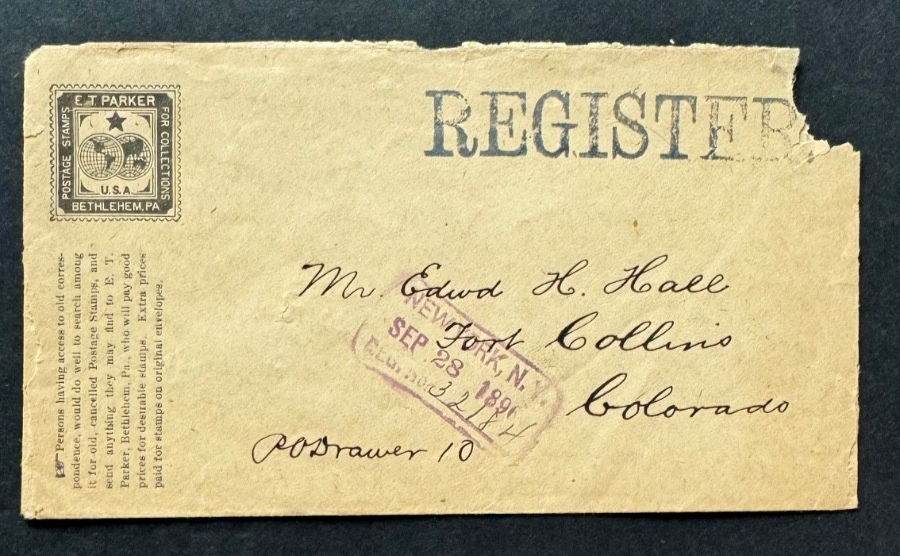 E T PARKER
POSTAGE STAMPS
FOR COLLECTIONS
U.S.A.
BETHLEHEM, PA
REGISTER
Mr. Edwd H. Hall
Fort Collins
Colorado
PODrawer 10
NEW YORK, N.Y.
SEP 28 189
REG. No. 32184
☞ Persons having access to old corres-
pondence, would do well to search among
it for old, cancelled Postage Stamps, and
send anything they may find to E. T.
Parker, Bethlehem, Pa., who will pay good
prices for desirable stamps. Extra prices
paid for stamps on original envelopes.